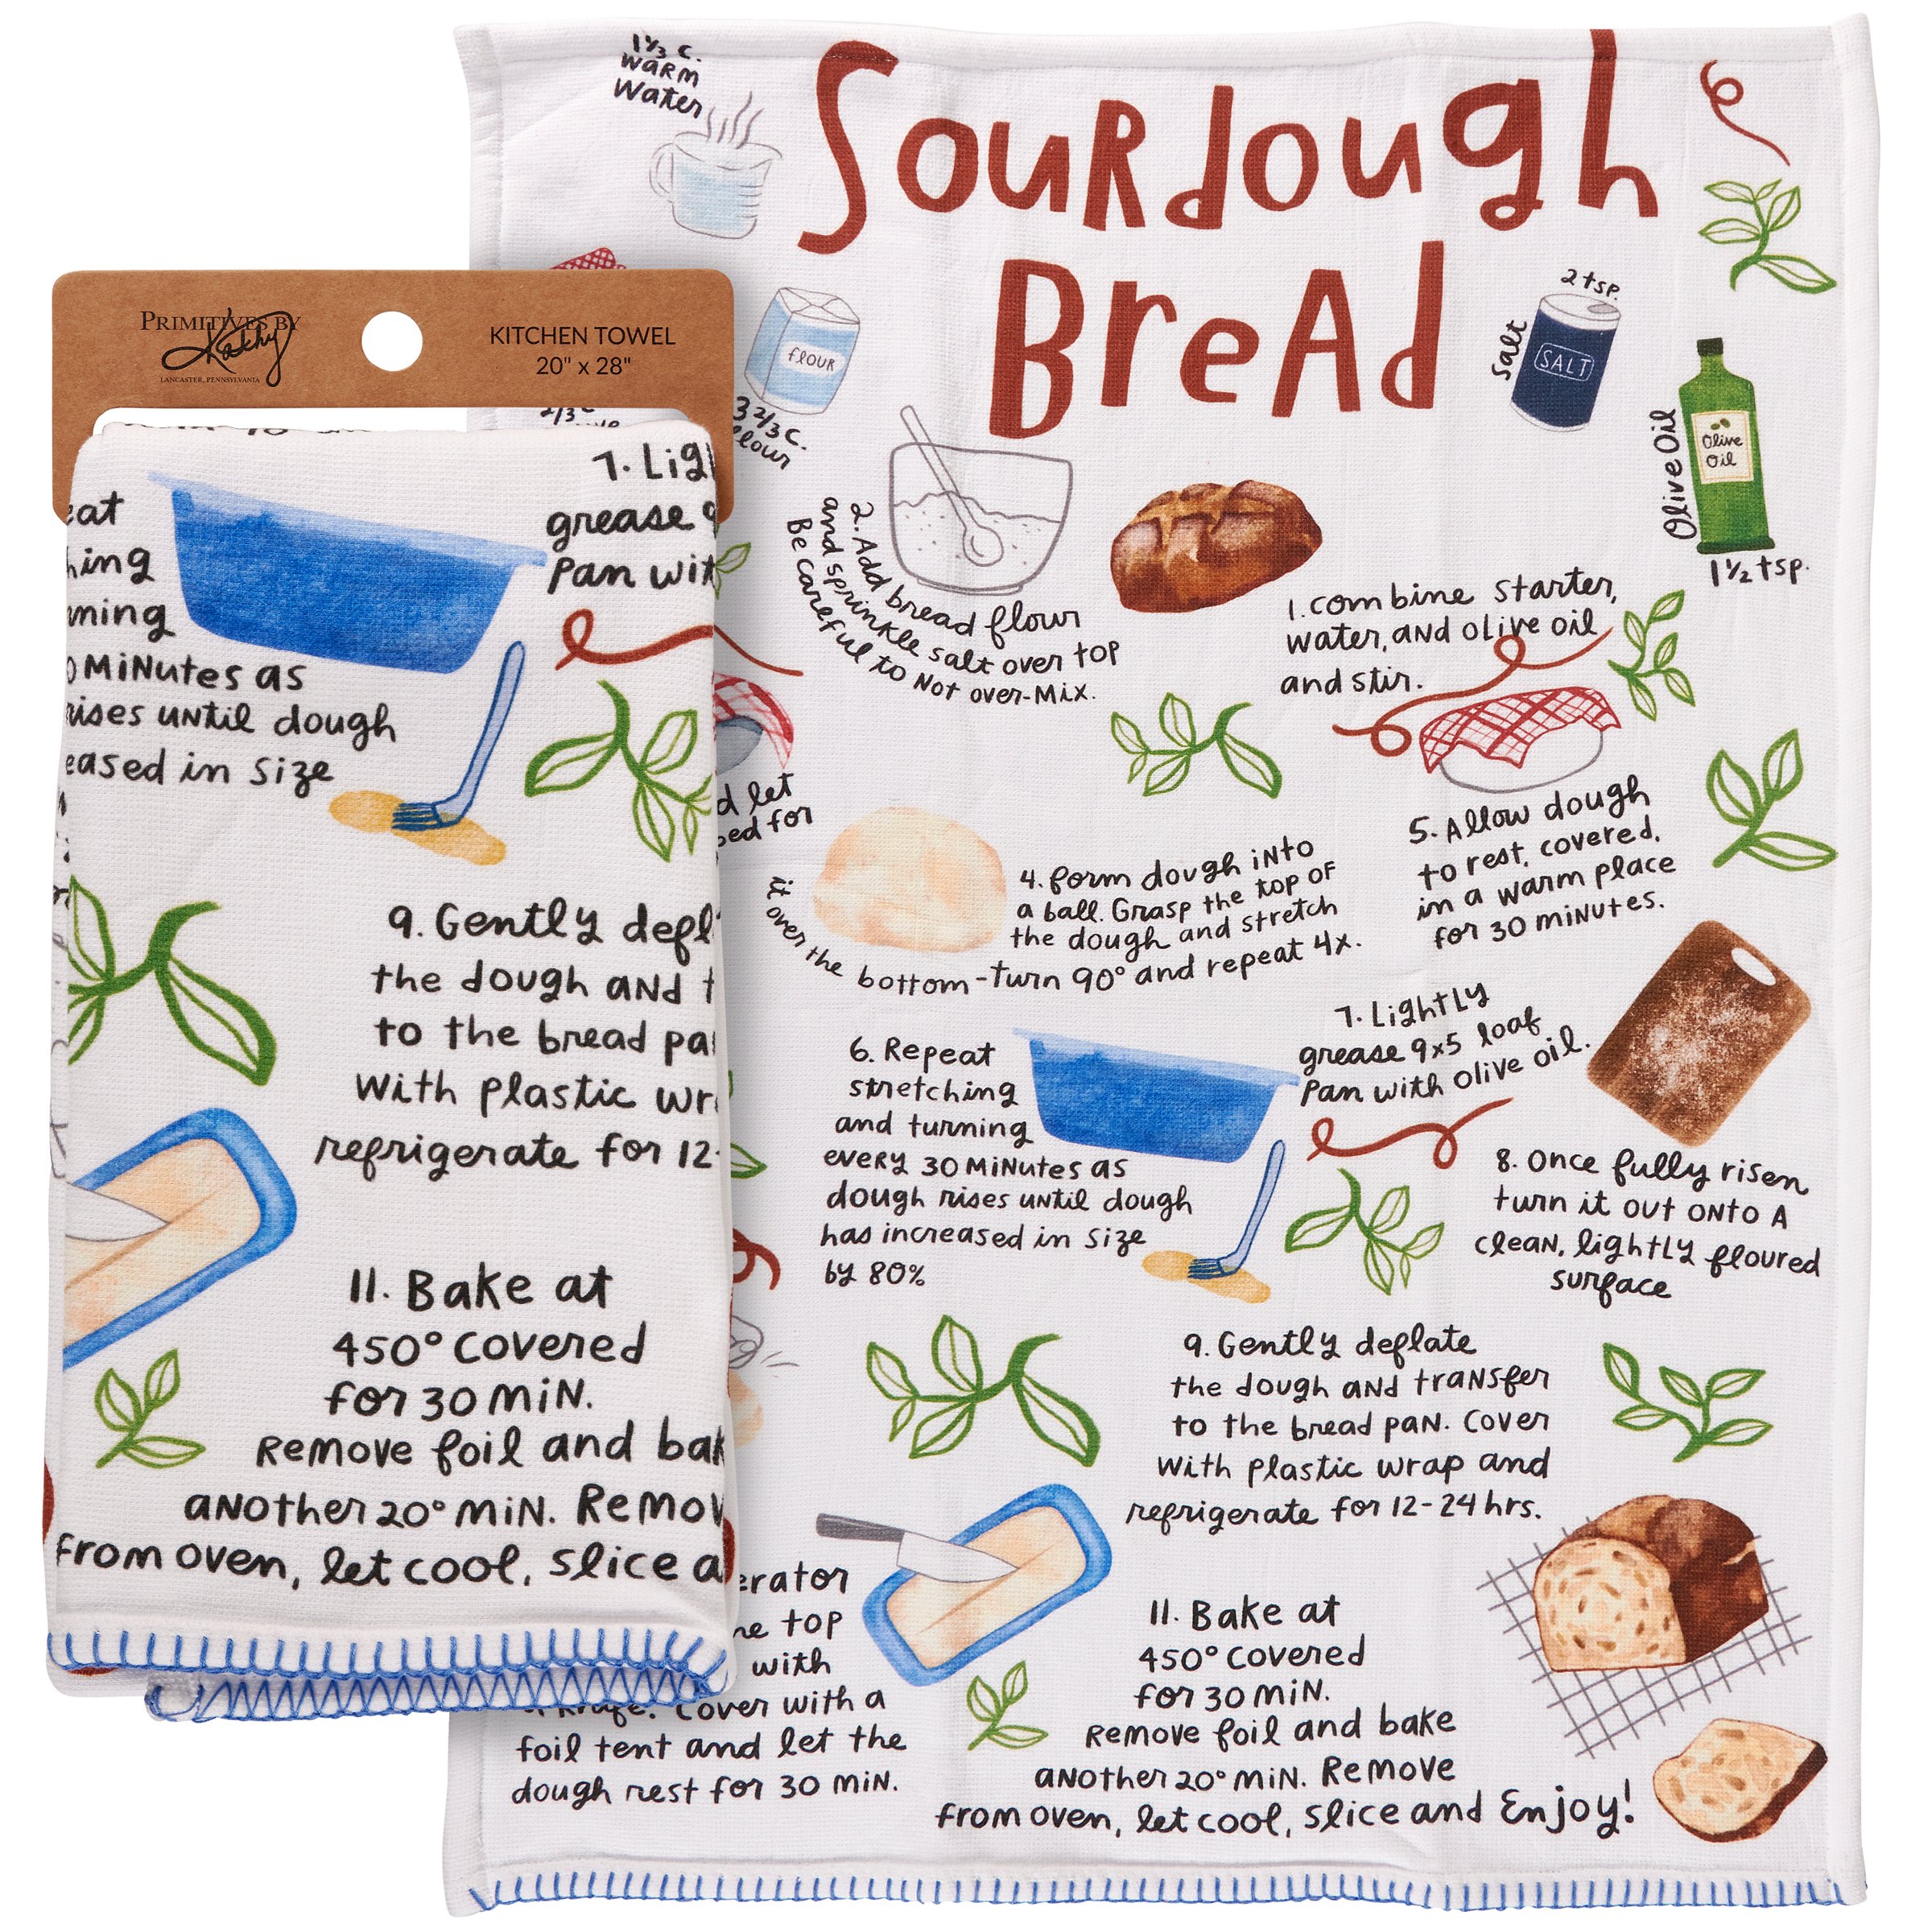 1⅓ c.
warm
Water
Sourdough
Bread
PRIMITIVES BY
Kathy
LANCASTER, PENNSYLVANIA
KITCHEN TOWEL
20" x 28"
flour
3 2/3 c.
flour
2 tsp.
Salt
SALT
Olive Oil
Olive
Oil
1½ tsp.
2/3 c
1. Combine starter,
water, and olive oil
and stir.
2. Add bread flour
and sprinkle salt over top
Be careful to Not over-Mix.
d let
ed for
4. form dough into
a ball. Grasp the top of
the dough and stretch
it over the bottom-turn 90° and repeat 4x.
5. Allow dough
to rest, covered,
in a warm place
for 30 minutes.
6. Repeat
stretching
and turning
every 30 Minutes as
dough rises until dough
has increased in size
by 80%
7. Lightly
grease 9x5 loaf
Pan with olive oil.
8. Once fully risen
turn it out onto a
clean, lightly floured
surface
9. Gently deflate
the dough and transfer
to the bread pan. Cover
with plastic wrap and
refrigerate for 12-24 hrs.
erator
he top
with
a knife. Cover with a
foil tent and let the
dough rest for 30 min.
11. Bake at
450° covered
for 30 min.
Remove foil and bake
another 20° min. Remove
from oven, let cool, slice and Enjoy!
7. Lig
grease 9
Pan wit
eat
hing
rning
0 Minutes as
rises until dough
eased in size
9. Gently defl
the dough and t
to the bread pa
with plastic wr
refrigerate for 12-
11. Bake at
450° covered
for 30 min.
Remove foil and bak
another 20° min. Remov
from oven, let cool, slice a